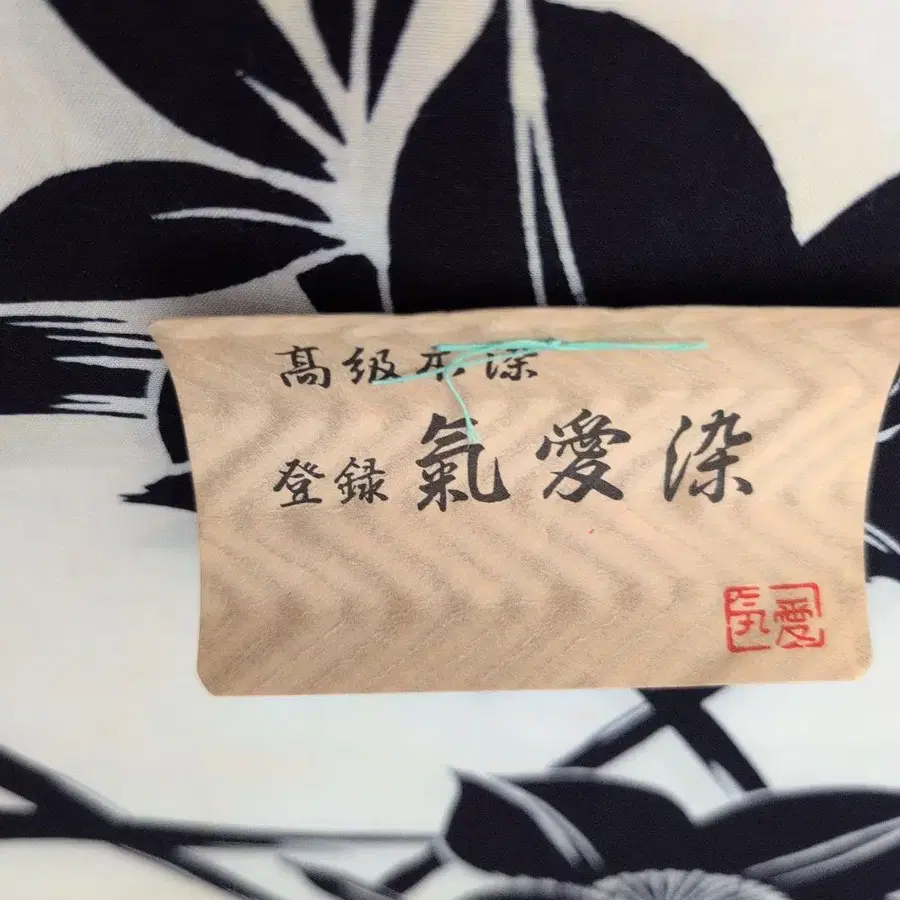 高級本染
登録 氣愛染
気愛